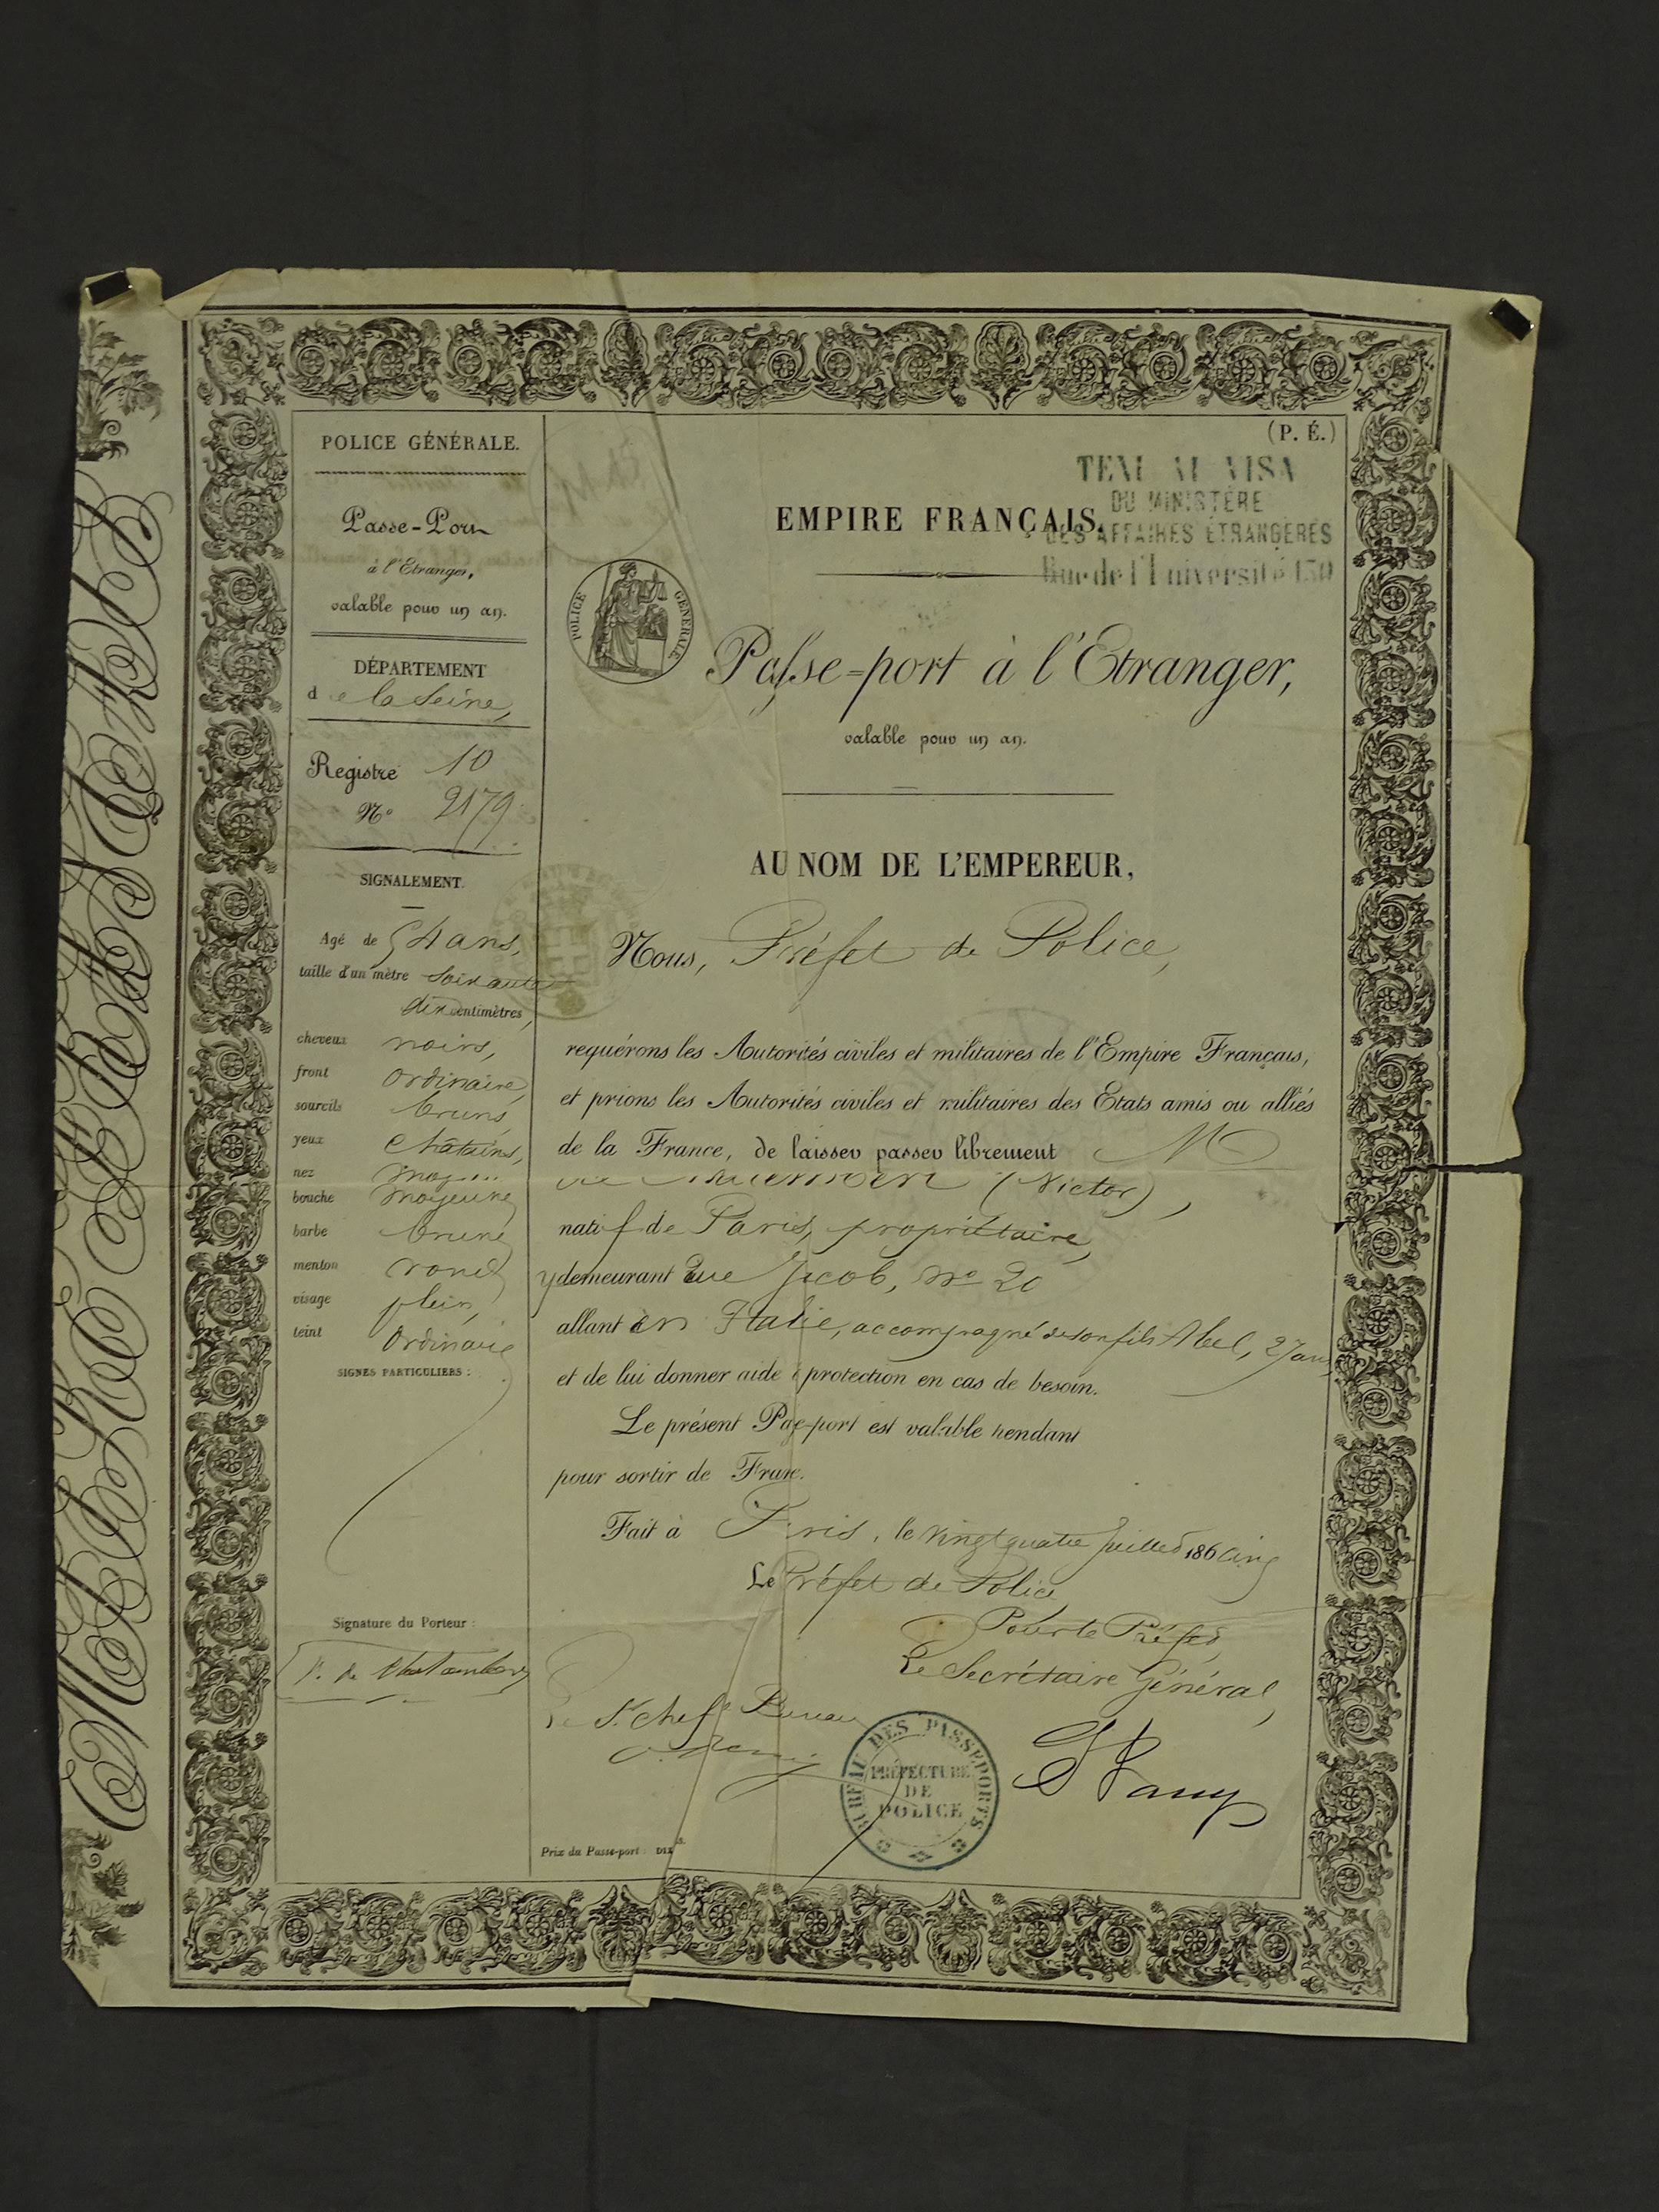 POLICE GÉNÉRALE.
Passe-Port
à l'Etranger,
valable pour un an.
DÉPARTEMENT
de la Seine,
Registre 10
N° 2179
SIGNALEMENT.
Agé de 54 ans,
taille d'un mètre soixante
dix centimètres,
cheveux noirs,
front ordinaire,
sourcils bruns,
yeux châtains,
nez
bouche moyenne
barbe brune
menton rond
visage plein,
teint Ordinaire
SIGNES PARTICULIERS :
Signature du Porteur :
V. de
(P. É.)
VISA
DU MINISTÈRE
DES AFFAIRES ÉTRANGÈRES
Rue de l'Université 130
EMPIRE FRANÇAIS.
POLICE GÉNÉRALE
Passe-port à l'Etranger,
valable pour un an.
AU NOM DE L'EMPEREUR,
Nous, Préfet de Police,
requérons les Autorités civiles et militaires de l'Empire Français,
et prions les Autorités civiles et militaires des Etats amis ou alliés
de la France, de laisser passer librement M
(Victor),
natif de Paris, propriétaire,
y demeurant Rue Jacob, n° 20
allant en Italie, accompagné de son fils Abel, 27 ans,
et de lui donner aide protection en cas de besoin.
Le présent Passe-port est valable pendant
pour sortir de France.
Fait à Paris, le vingt quatre Juillet 186 cinq
Le Préfet de Police
Pour le Préfet
Le Secrétaire Général,
Le S. chef Bureau
BUREAU DES PASSEPORTS
PRÉFECTURE
DE
POLICE
Prix du Passe-port : DIX